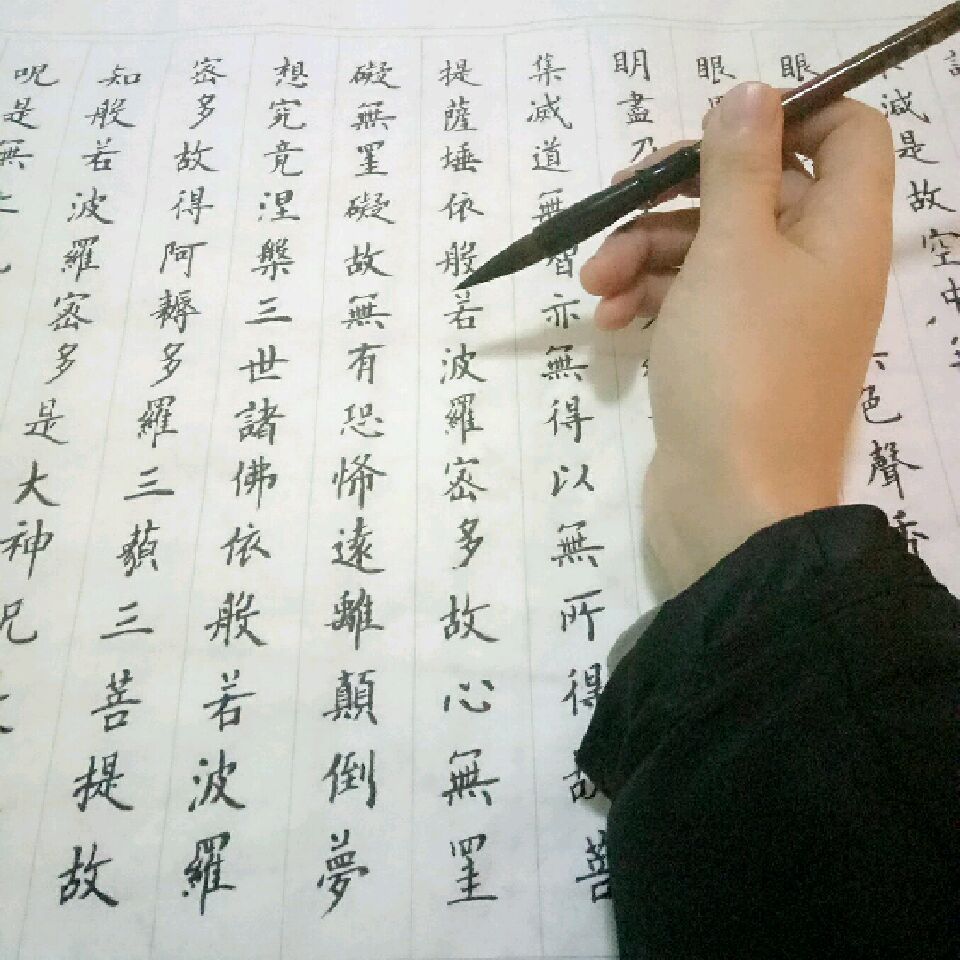 減是故空中
眼色聲香
眼
明盡乃
集滅道無智亦無得以無所得故菩
提薩埵依般若波羅密多故心無罣
礙無罣礙故無有恐怖遠離顛倒夢
想究竟涅槃三世諸佛依般若波羅
密多故得阿耨多羅三藐三菩提故
知般若波羅密多是大神呪
呪是無